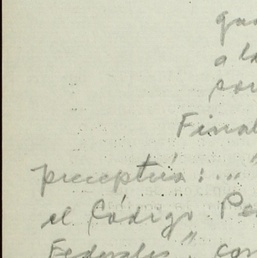 a la
Final
preceptúa: ... "
el Código Pe
Federales", con